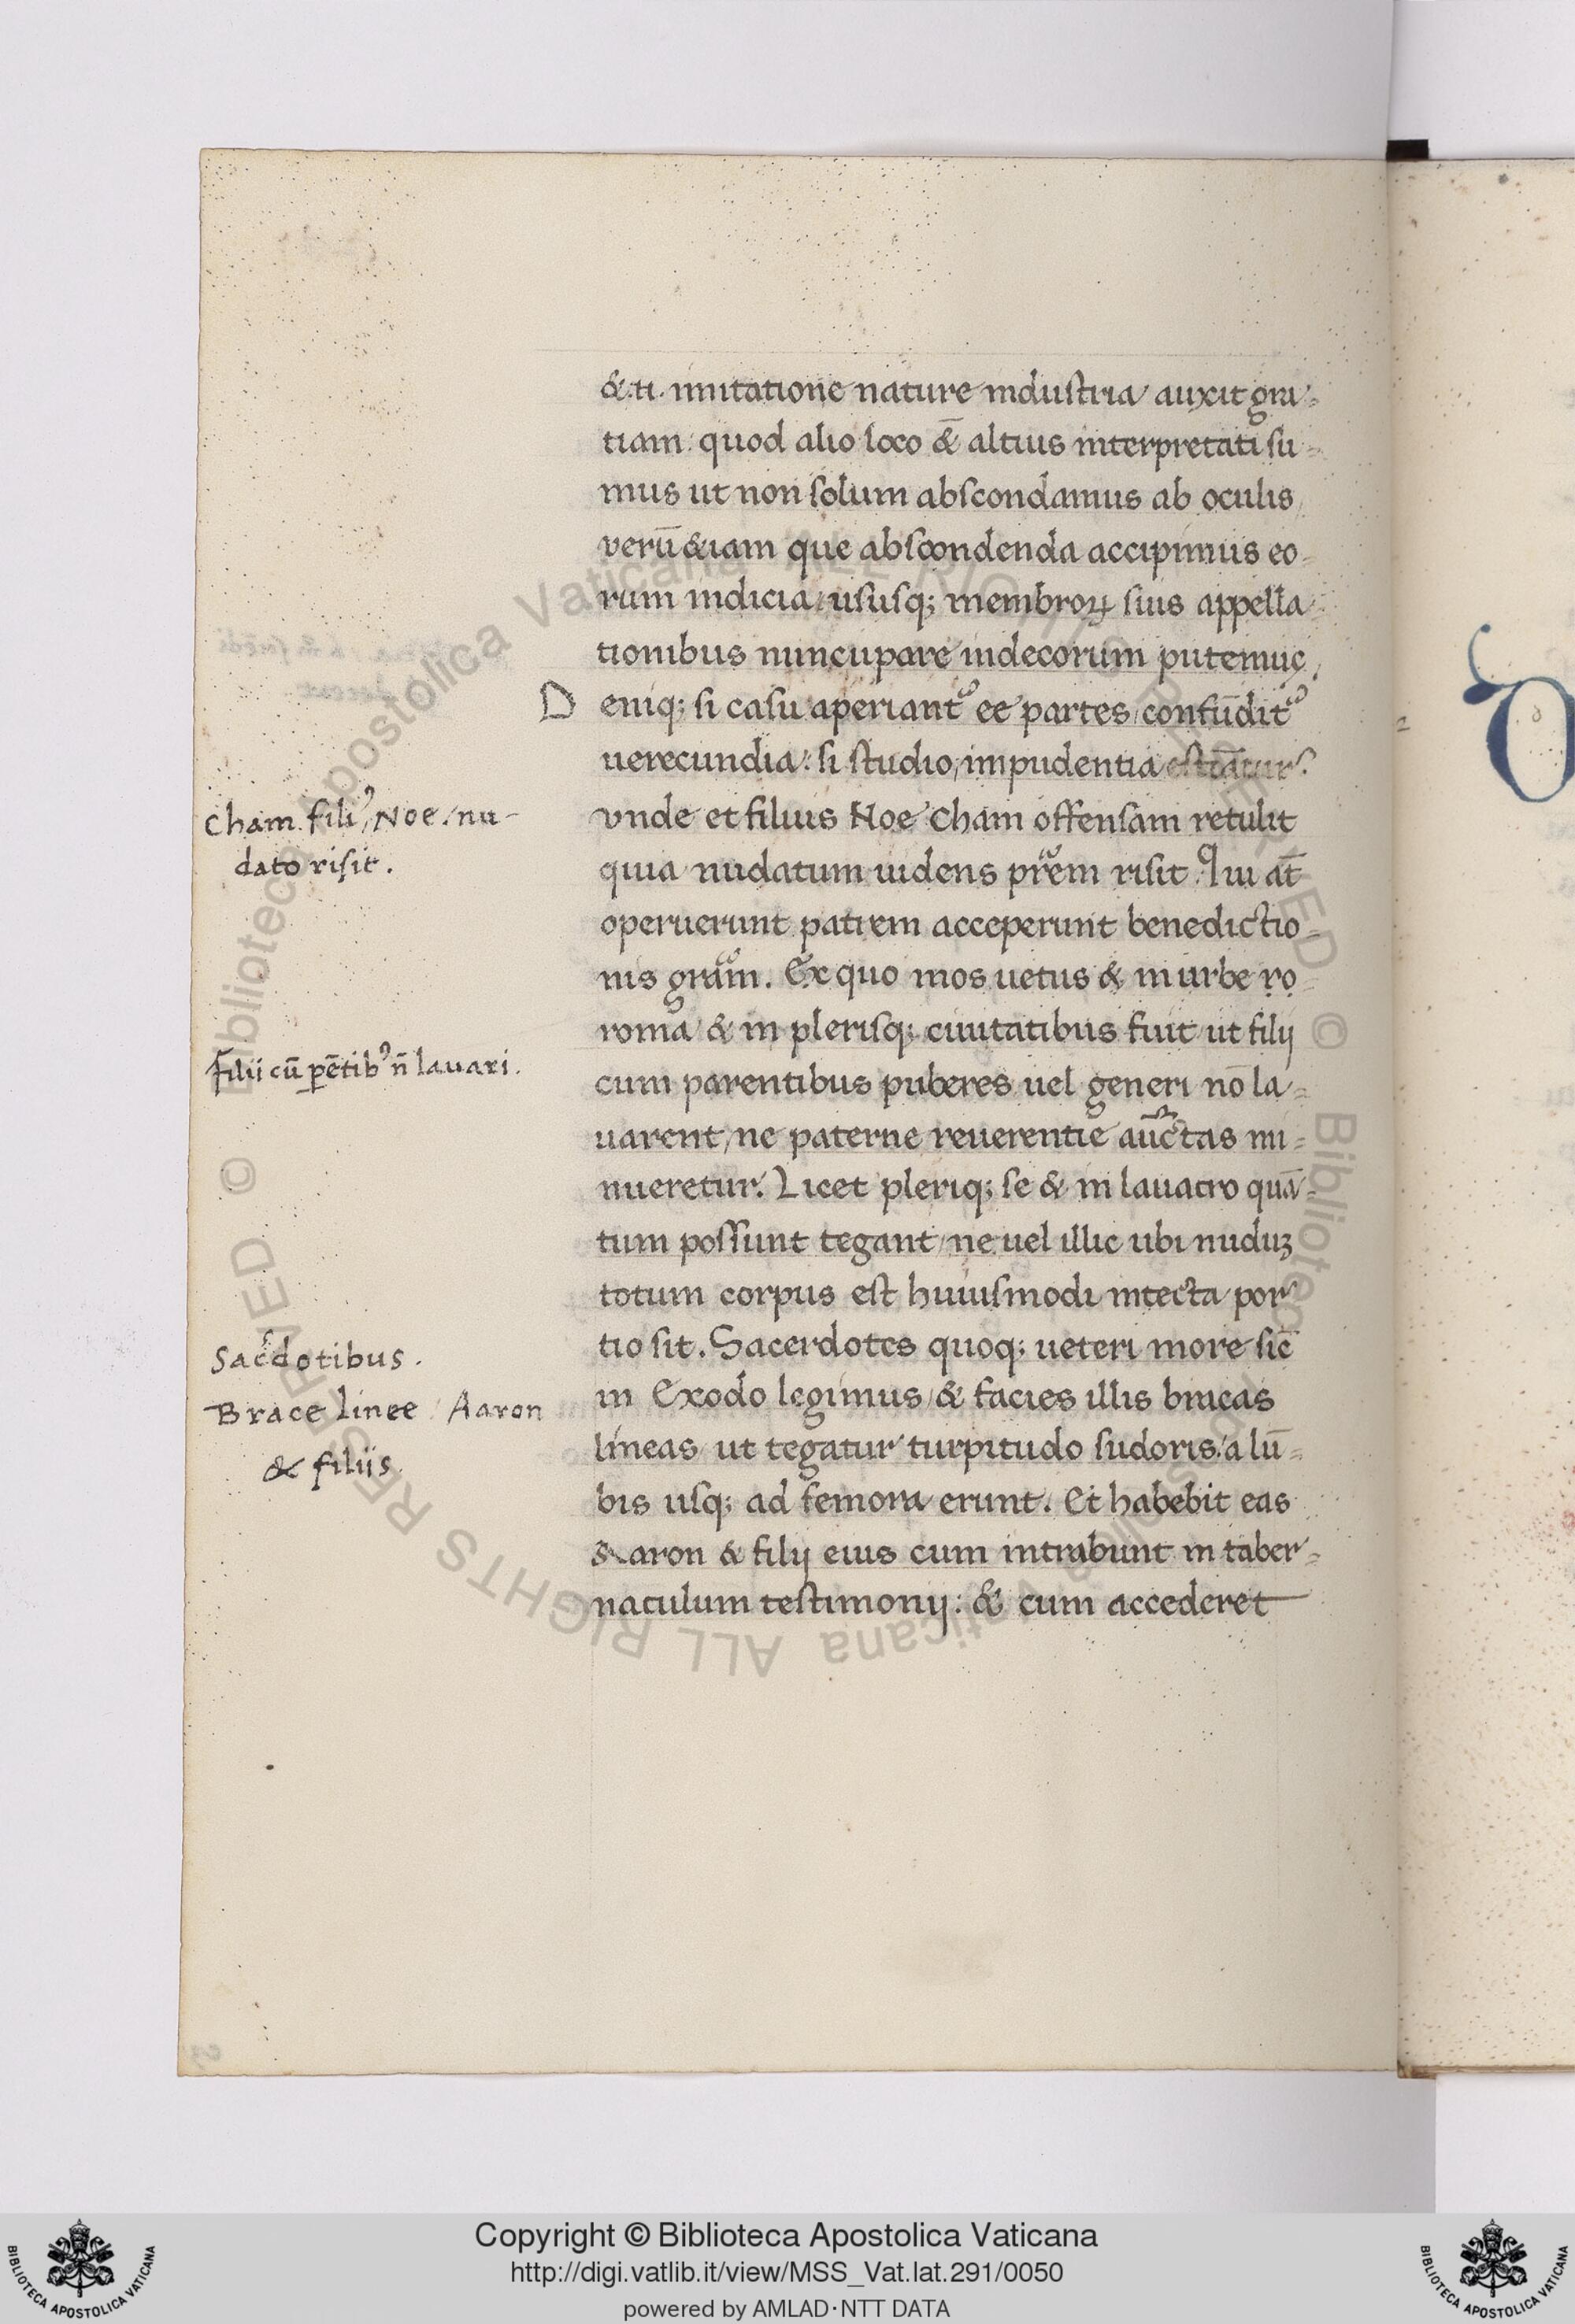 &.ti. imitatione nature industria auxit gra-
tiam: quod alio loco &̄ altius interpretati su-
mus ut non solum abscondamus ab oculis
verū &iam que abscondenda accipimus eo-
rum indicia, ususq; membroꝝ suis appella-
tionibus nuncupare indecorum putemus,
D eniq; si casu aperiant᷒ ee partes, confūdit᷒
uerecundia: si studio, impudentia
vnde et filius Noe Cham offensam retulit
quia nudatum uidens prem risit. Qui at̄
operuerunt patrem acceperunt benedictio-
nis gram. Ex quo mos uetus & in urbe ro
roma & in plerisq; ciuitatibus fuit ut filij
cum parentibus puberes uel generi nō la-
uarent, ne paterne reuerentie auctas mi-
nueretur. Licet pleriq; se & in lauacro quā-
tum possunt tegant, ne uel illic ubi nuduꝫ
totum corpus est huiusmodi intecta por
tio sit. Sacerdotes quoq; ueteri more sic̄
in Exodo legimus, & facies illis bracas
lineas ut tegatur turpitudo sudoris: a lū-
bis usq; ad femora erunt. Et habebit eas
Aaron & filij eius cum intrabunt in taber-
naculum testimonij: & cum accederet
Cham. filiꝰ, Noe, nu-
dato risit.
Filii cū pētibꝰ n̄ lauari.
Sacdotibus.
Brace linee Aaron
& filiis.
© Biblioteca Apostolica Vaticana ALL RIGHTS RESERVED © Biblioteca Apostolica Vaticana ALL RIGHTS RESERVED
Copyright © Biblioteca Apostolica Vaticana
http://digi.vatlib.it/view/MSS_Vat.lat.291/0050
powered by AMLAD·NTT DATA
BIBLIOTECA APOSTOLICA VATICANA
BIBLIOTECA APOSTOLICA VATICANA